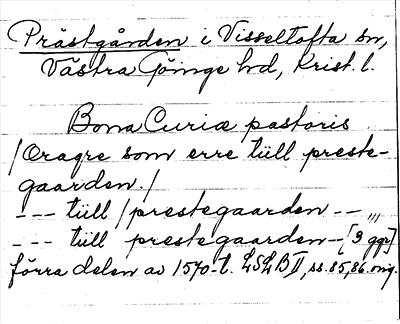 Prästgården i Visseltofta sn,
Västra Göinge hd, Krist. l.
Bona Curiæ pastoris
/Oragre som erre tüll preste-
gaarden./
--- tüll /prestegaarden -- „,
--- tüll prestegaarden--[3 ggr]
förra delen av 1570-t. LSLB II, ss. 85, 86. orig.